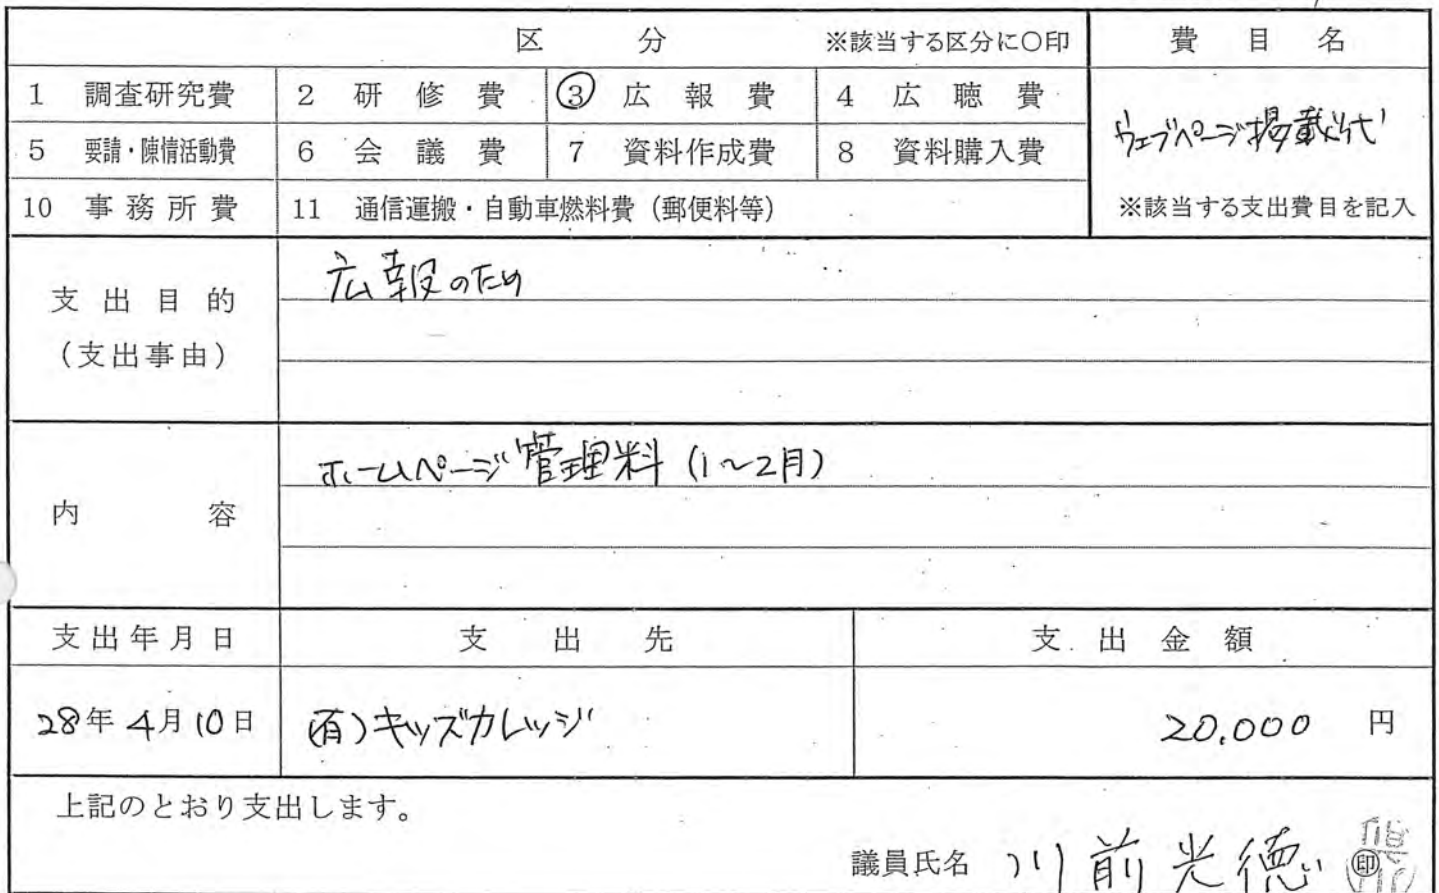 区 分 ※該当する区分に〇印 費目名
1 調査研究費 2 研修費 ③ 広報費 4 広聴費
ウェブページ掲載代
5 要請・陳情活動費 6 会議費 7 資料作成費 8 資料購入費
10 事務所費 11 通信運搬・自動車燃料費（郵便料等） ※該当する支出費目を記入
支出目的
（支出事由）
広報のため
内容
ホームページ管理料（1～2月）
支出年月日 支出先 支出金額
28年4月10日 (有)キッズカレッジ 20,000 円
上記のとおり支出します。
議員氏名 川前光徳 ㊞